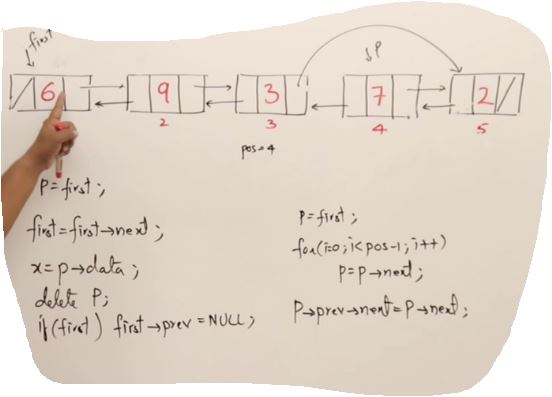 first
↓P
6 9 3 7 2
2 3 4 5
pos=4
P=first;
first=first→next;
x=p→data;
delete P;
if(first) first→prev=NULL;
P=first;
for(i=0;i<pos-1;i++)
P=P→next;
P→prev→next=P→next;